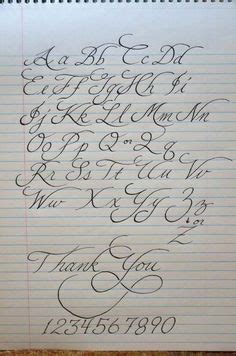 Aa Bb Cc Dd
Ee Ff Gg Hh Ii
Jj Kk Ll Mm Nn
Oo Pp Q or 2q
Rr Ss Tt Uu Vv
Ww Xx Yy Zz
or
Z
Thank You
1234567890